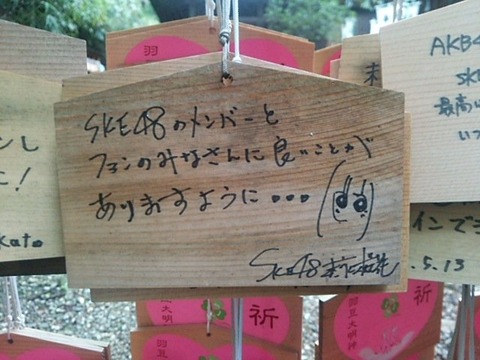 SKE48のメンバーと
ファンのみなさんに良いことが
ありますように...
SKE48
AKB4
SK
最高
いつ
ンし
に!
kato
インで
5.13
祈
羽豆大明神
祈